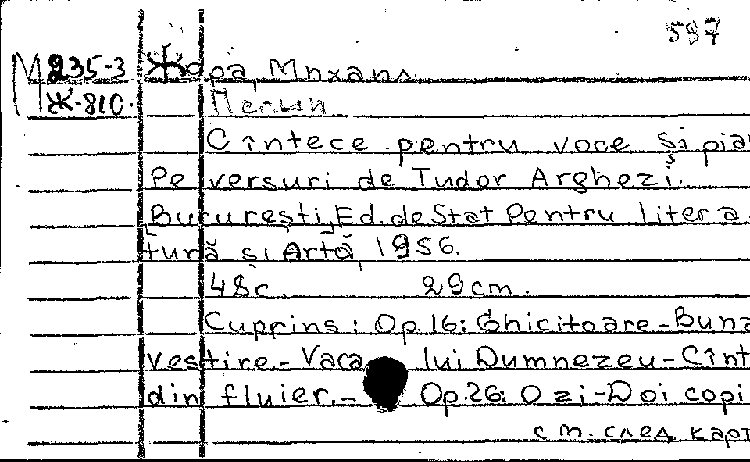 597
М 235-3 Жора, Михаил
Ж-810. Песни
Cîntece pentru voce și pian
Pe versuri de Tudor Arghezi.
București, Ed. de Stat Pentru litera
tură și Artă, 1956.
48 c. 29 cm.
Cuprins: Op. 16: Ghicitoare - Buna
vestire. - Vaca lui Dumnezeu - Cînt
din fluier. - Op. 26: O zi - Doi copi
см. след. карт